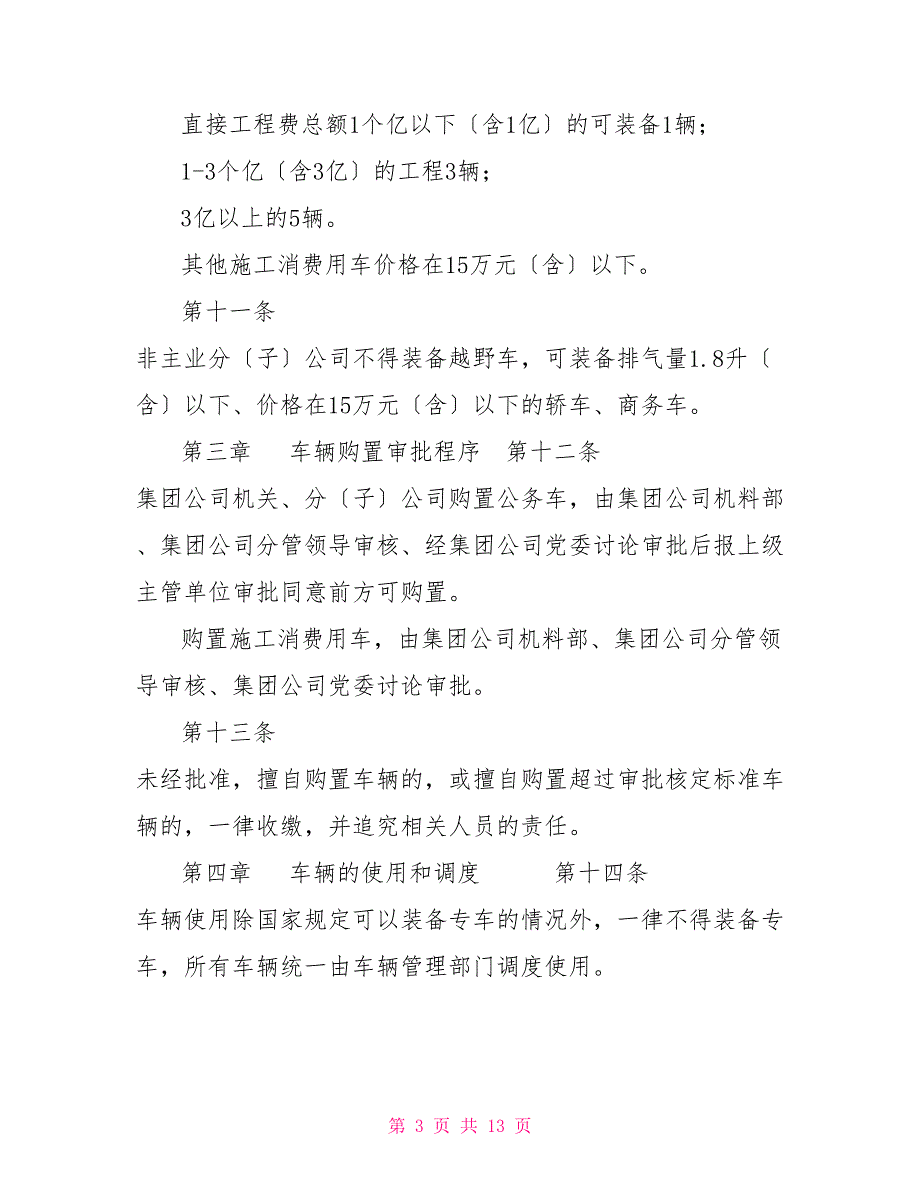 直接工程费总额1个亿以下〔含1亿〕的可装备1辆；
1-3个亿〔含3亿〕的工程3辆；
3亿以上的5辆。
其他施工消费用车价格在15万元〔含〕以下。
第十一条
非主业分〔子〕公司不得装备越野车，可装备排气量1.8升〔
含〕以下、价格在15万元〔含〕以下的轿车、商务车。
第三章 车辆购置审批程序 第十二条
集团公司机关、分〔子〕公司购置公务车，由集团公司机料部
、集团公司分管领导审核、经集团公司党委讨论审批后报上级
主管单位审批同意前方可购置。
购置施工消费用车，由集团公司机料部、集团公司分管领
导审核、集团公司党委讨论审批。
第十三条
未经批准，擅自购置车辆的，或擅自购置超过审批核定标准车
辆的，一律收缴，并追究相关人员的责任。
第四章 车辆的使用和调度 第十四条
车辆使用除国家规定可以装备专车的情况外，一律不得装备专
车，所有车辆统一由车辆管理部门调度使用。
第 3 页 共 13 页